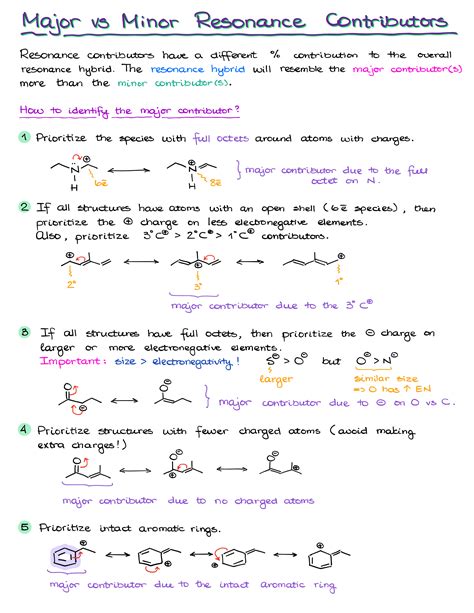 Major vs Minor Resonance Contributors
Resonance contributors have a different % contribution to the overall
resonance hybrid. The resonance hybrid will resemble the major contributor(s)
more than the minor contributor(s).
How to identify the major contributor?
1 Prioritize the species with full octets around atoms with charges.
N H 6ē
N H 8ē
major contributor due to the full
octet on N.
2 If all structures have atoms with an open shell (6ē species), then
prioritize the ⊕ charge on less electronegative elements.
Also, prioritize 3°C⊕ > 2°C⊕ > 1°C⊕ contributors.
2° 3° 1°
major contributor due to the 3°C⊕
3 If all structures have full octets, then prioritize the ⊖ charge on
larger or more electronegative elements.
Important: size > electronegativity! S⊖ > O⊖ but O⊖ > N⊖
larger similar size
=> O has ↑ EN
O O
major contributor due to ⊖ on O vs C.
4 Prioritize structures with fewer charged atoms (avoid making
extra charges!)
O O O
major contributor due to no charged atoms
5 Prioritize intact aromatic rings.
major contributor due to the intact aromatic ring